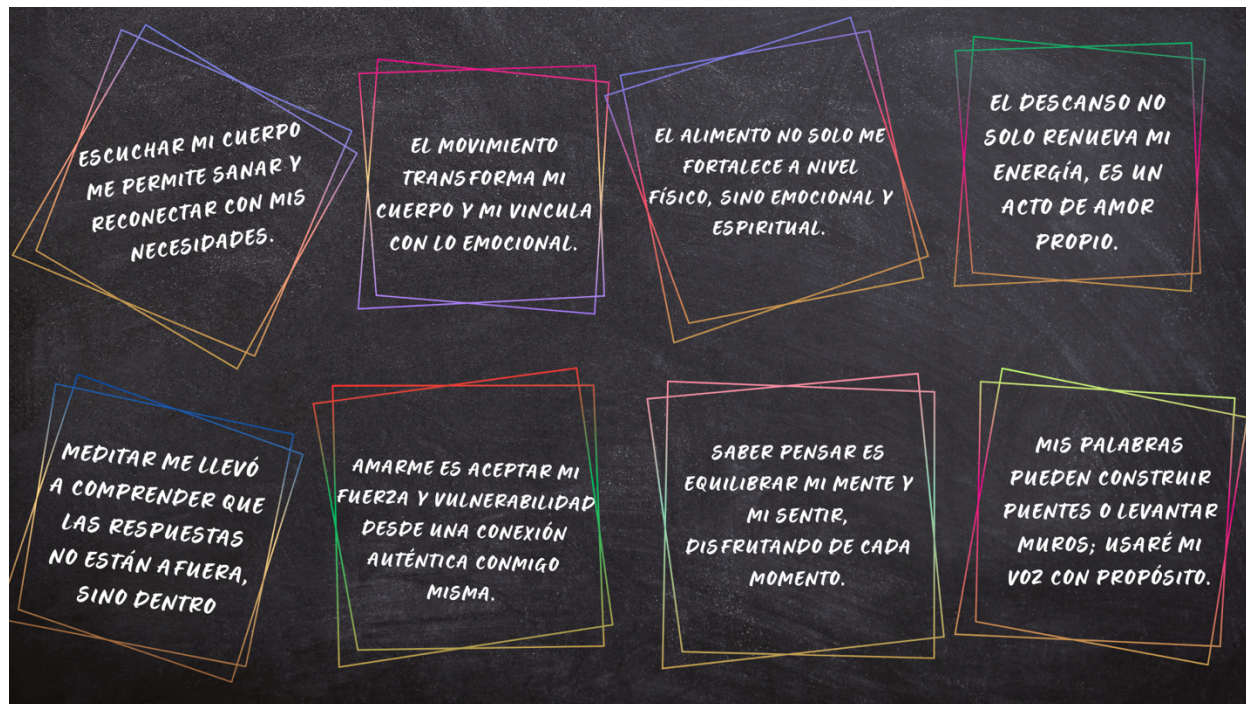 ESCUCHAR MI CUERPO
ME PERMITE SANAR Y
RECONECTAR CON MIS
NECESIDADES.
EL MOVIMIENTO
TRANSFORMA MI
CUERPO Y MI VINCULA
CON LO EMOCIONAL.
EL ALIMENTO NO SOLO ME
FORTALECE A NIVEL
FÍSICO, SINO EMOCIONAL Y
ESPIRITUAL.
EL DESCANSO NO
SOLO RENUEVA MI
ENERGÍA, ES UN
ACTO DE AMOR
PROPIO.
MEDITAR ME LLEVÓ
A COMPRENDER QUE
LAS RESPUESTAS
NO ESTÁN AFUERA,
SINO DENTRO
AMARME ES ACEPTAR MI
FUERZA Y VULNERABILIDAD
DESDE UNA CONEXIÓN
AUTÉNTICA CONMIGO
MISMA.
SABER PENSAR ES
EQUILIBRAR MI MENTE Y
MI SENTIR,
DISFRUTANDO DE CADA
MOMENTO.
MIS PALABRAS
PUEDEN CONSTRUIR
PUENTES O LEVANTAR
MUROS; USARÉ MI
VOZ CON PROPÓSITO.